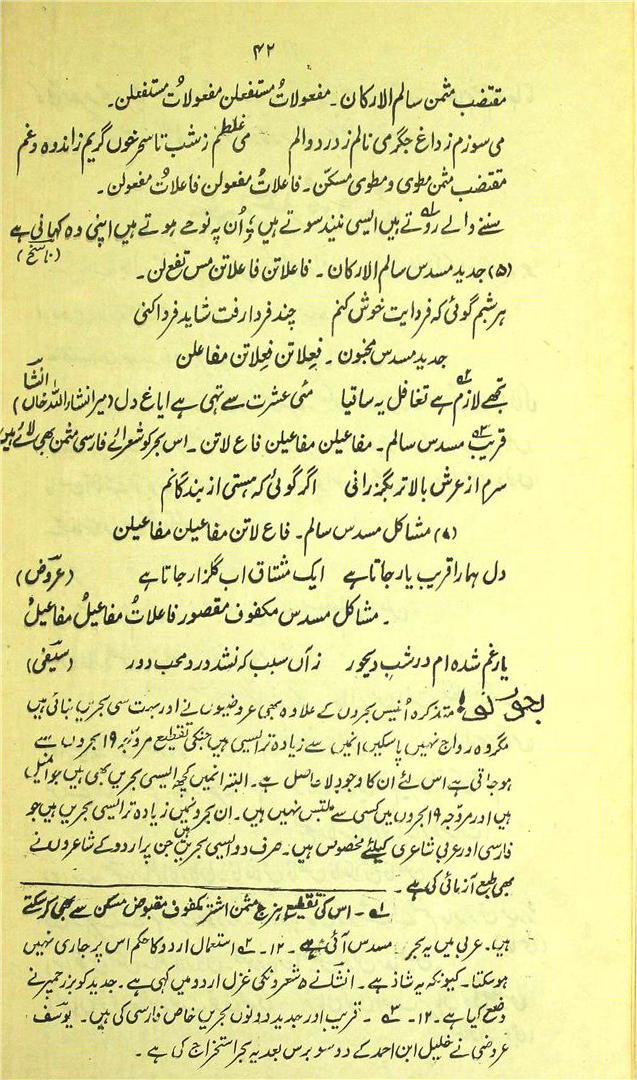 ۴۲
مقتضب مثمن سالم الارکان۔ مفعولاتُ مستفعلن مفعولاتُ مستفعلن۔
می سوزم ز داغ جگر می نالم ز درد و الم می غلطم ز شب تا سحر خوں گریم ز اندوہ و غم
مقتضب مثمن مطوی و مطوی مسکن۔ فاعلاتُ مفعولن فاعلاتُ مفعولن۔
سننے والے روتے ہیں ایسی نیند سوتے ہیں ؛ اُن پہ نوحے ہوتے ہیں اپنی وہ کہانی ہے
(ناسخ)
(۵) جدید مسدس سالم الارکان۔ فاعلاتن فاعلاتن مس تفع لن۔
ہر شبم گوئی کہ فردایت خوش کنم چند فردا رفت شاید فردا کنی
جدید مسدس مخبون۔ فعلاتن فعلاتن مفاعلن
تجھے لازم ہے تغافل یہ ساقیا مئی عشرت سے تہی ہے ایاغ دل (میر انشاء اللہ خاں) انشا
قریب مسدس سالم۔ مفاعیلن مفاعیلن فاع لاتن۔ اس بحر کو شعرائے فارسی مثمن بھی لائے ہیں
سرم از عرش بالاتر بگزرانی اگر گوئی کہ ہستی از بندگانم
(۸) مشاکل مسدس سالم۔ فاع لاتن مفاعیلن مفاعیلن
دل ہمارا قریب یار جاتا ہے ایک مشتاق اب گلزار جاتا ہے (عروض)
۔ مشاکل مسدس مکفوف مقصور فاعلاتُ مفاعیلُ مفاعیلْ
یار غم شدہ ام در شبِ دیجور زاں سبب کہ نشد درد محب دور (سیفی)
بحور نو! متذکرہ اُنیس بحروں کے علاوہ بھی عروضیوں نے اور بہت سی بحریں بنائی ہیں
مگر وہ رواج نہیں پا سکیں انمیں سے زیادہ تر ایسی ہیں جنکی تقطیع مروّجہ ۱۹ بحروں سے
ہو جاتی ہے اس لئے ان کا وجود لا حاصل ہے۔ البتہ انمیں کچھ ایسی بحریں بھی ہیں جو اصیل
ہیں اور مروّجہ ۱۹ بحروں میں کسی سے ملتبس نہیں ہیں۔ ان بحرونمیں زیادہ تر ایسی بحریں ہیں جو
فارسی اور عربی شاعری کیلئے مخصوص ہیں۔ صرف دو ایسی بحریں ہیں جن پر اردو کے شاعروں نے
بھی طبع آزمائی کی ہے۔
۱؎۔ اس کی تقطیع ہزج مثمن اشتر مکفوف مقبوض مسکن سے بھی کر سکتے
ہیں۔ عربی میں یہ بحر مسدس آئی ہے۔ ۱۲۔ ۲؎ استعمال اردو کا حکم اس پر جاری نہیں
ہو سکتا۔ کیونکہ یہ شاذ ہے۔ انشا نے ۵ شعرونکی غزل اردو میں کہی ہے۔ جدید کو بزرجمہر نے
وضع کیا ہے۔ ۱۲۔ ۳؎۔ قریب اور جدید دونوں بحریں خاص فارسی کی ہیں۔ یوسف
عروضی نے خلیل ابن احمد کے دو سو برس بعد یہ بحر استخراج کی ہے۔